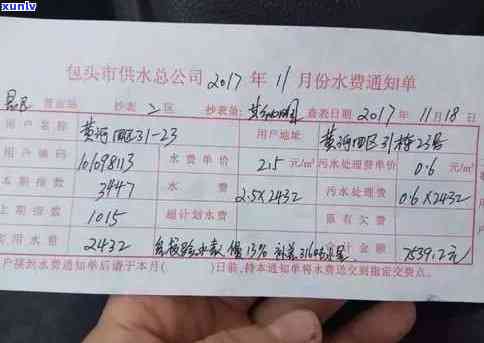 xunlv
包头市供水总公司2017年11月份水费通知单
昆区 营业站 抄表 2区 抄表员 查表日期 2017 11 18
用户名称 黄河四区31-23 用户地址 黄河四区31栋23号
用户编码 101098113 水费单价 2.5元/m³ 污水处理费单价 0.6元/m³
本期指数 3447 水费 2.5×2432 污水处理费 0.6×2432
上期指数 1015 超计划水费 原有欠费
实用水量 2432 水表 13% 合计金额 7539.2元
户接到水费通知单后请于本月( )日前,持本通知单将水费送交到指定交费点。